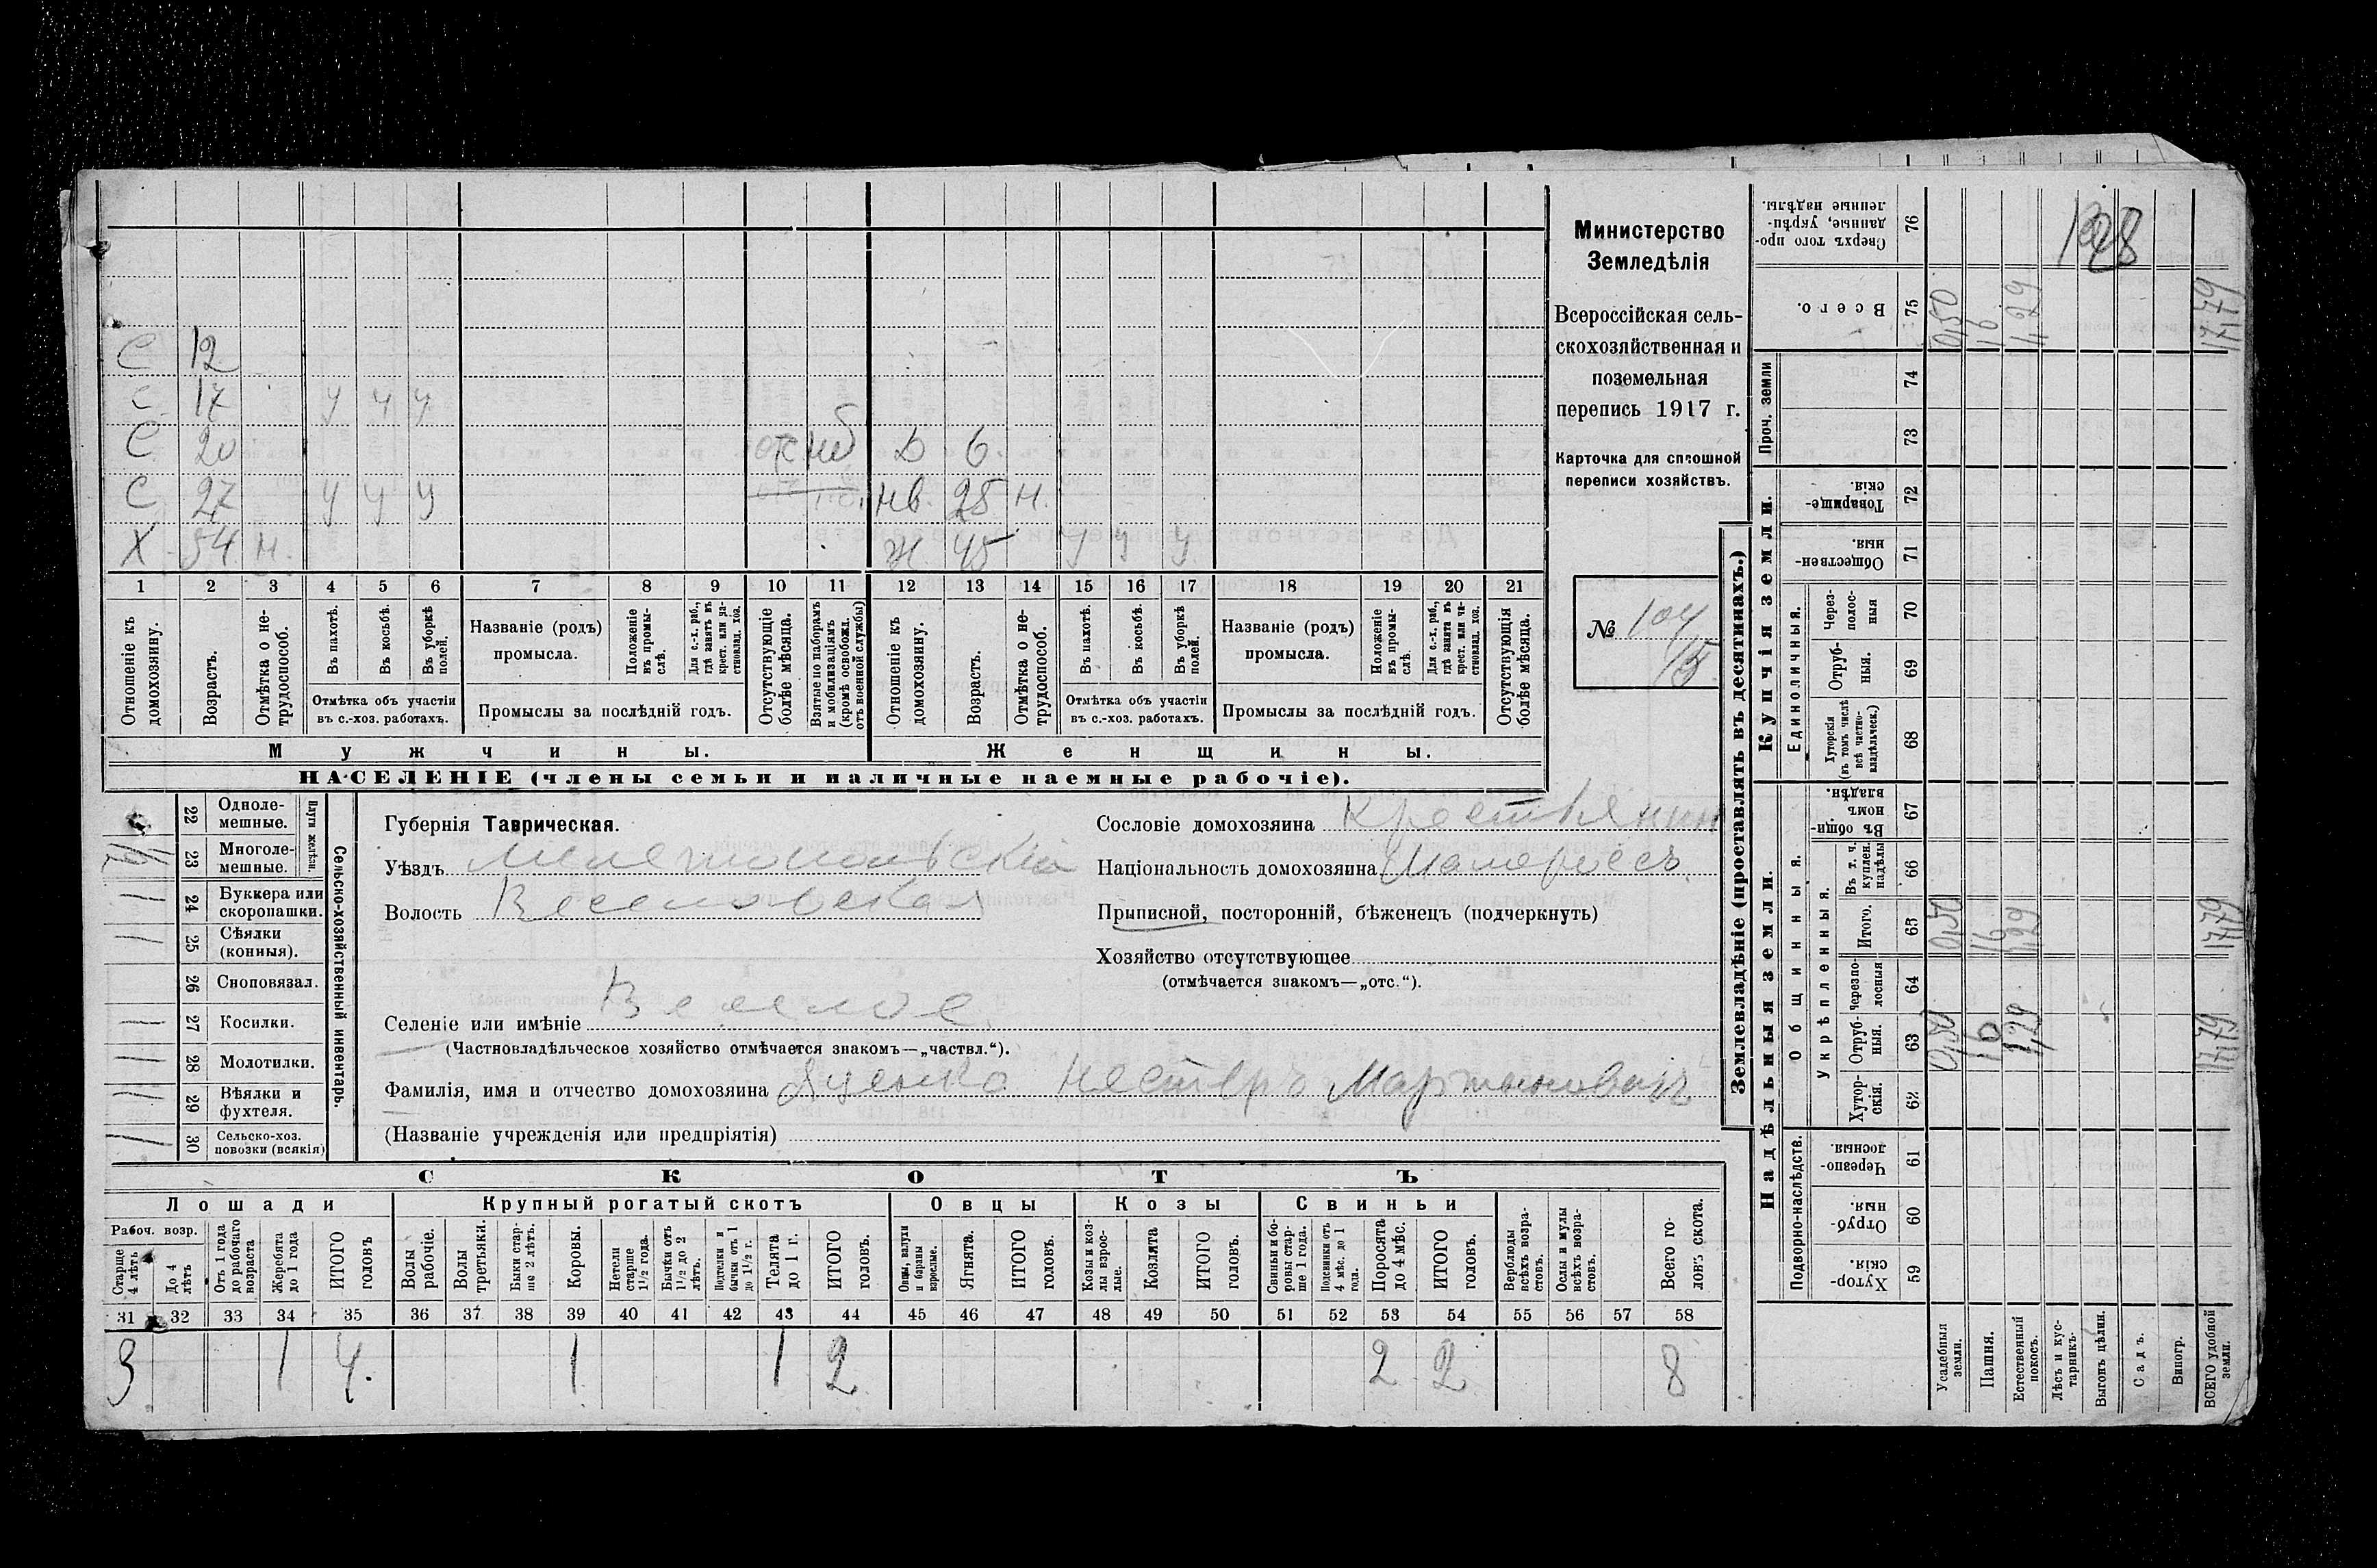 Министерство
Земледѣлія
Всероссійская сель-
скохозяйственная и
поземельная
перепись 1917 г.
Карточка для сплошной
переписи хозяйствъ.
№ 104
15
С 12
С 17 у у у
С 20 отс наб Д 6
С 27 у у у нв. 25 н.
Х 54 н. ж. 45 у у у
1 2 3 4 5 6 7 8 9 10 11 12 13 14 15 16 17 18 19 20 21
Отношеніе къ домохозяину.
Возрастъ.
Отмѣтка о не-трудоспособ.
Въ пахотѣ.
Въ косьбѣ.
Въ уборкѣ полей.
Отмѣтка объ участіи
въ с.-хоз. работахъ.
Названіе (родъ)
промысла.
Положеніе въ промы-слѣ.
Для с.-х. раб., гдѣ занятъ въ крест. или ча-стновлад. хоз.
Промыслы за послѣдній годъ.
Отсутствующіе болѣе мѣсяца.
Взятые по наборамъ и мобилизаціямъ (кромѣ освобожд. отъ военной службы)
Отношеніе къ домохозяину.
Возрастъ.
Отмѣтка о не-трудоспособ.
Въ пахотѣ.
Въ косьбѣ.
Въ уборкѣ полей.
Отмѣтка объ участіи
въ с.-хоз. работахъ.
Названіе (родъ)
промысла.
Положеніе въ промы-слѣ.
Для с.-х. раб., гдѣ занята въ крест. или ча-стновлад. хоз.
Промыслы за послѣдній годъ.
Отсутствующія болѣе мѣсяца.
Мужчины.
Женщины.
НАСЕЛЕНІЕ (члены семьи и наличные наемные рабочіе).
Сельско-хозяйственный инвентарь.
Плуги желѣзн.
22 Одноле-мешные.
23 Многоле-мешные.
1 24 Буккера или скоропашки.
1 25 Сѣялки (конныя).
26 Сноповязал.
1 27 Косилки.
1 28 Молотилки.
1 29 Вѣялки и фухтеля.
1 30 Сельско-хоз. повозки (всякія)
Губернія Таврическая.
Уѣздъ Мелитопольскій
Волость Веселовская
Сословіе домохозяина Крестьянин
Національность домохозяина Малороссъ.
Приписной, посторонній, бѣженецъ (подчеркнуть)
Хозяйство отсутствующее
(отмѣчается знакомъ—„отс.“).
Селеніе или имѣніе Веселое.
(Частновладѣльческое хозяйство отмѣчается знакомъ—„частвл.“).
Фамилія, имя и отчество домохозяина Яценко Нестеръ Мартыновичъ
(Названіе учрежденія или предпріятія)
СКОТЪ
Лошади
Крупный рогатый скотъ
Овцы
Козы
Свиньи
Рабоч. возр.
Старше 4 лѣтъ
До 4 лѣтъ
Отъ 1 года до рабочаго возраста
Жеребята до 1 года
ИТОГО головъ
Волы рабочіе.
Волы третьяки.
Быки стар-ше 2 лѣтъ.
Коровы.
Нетели старше 1½ года.
Бычки отъ 1½ до 2 лѣтъ.
Подтелки и бычки отъ 1 до 1½ г.
Телята до 1 г.
ИТОГО головъ.
Овцы, валухи и бараны взрослые.
Ягнята.
ИТОГО головъ.
Козы и коз-лы взрос-лые.
Козлята
ИТОГО головъ.
Свиньи и бо-ровы стар-ше 1 года.
Подсвинки отъ 4 мѣс. до 1 года.
Поросята до 4 мѣс.
ИТОГО головъ.
Верблюды всѣхъ возра-стовъ.
Ослы и мулы всѣхъ возра-стовъ.
Всего го-ловъ скота.
31 32 33 34 35 36 37 38 39 40 41 42 43 44 45 46 47 48 49 50 51 52 53 54 55 56 57 58
3 1 4. 1 1 2 2 2 8
Землевладѣніе (проставлять въ десятинахъ.)
Надѣльныя земли.
Купчія земли.
Проч. земли
Подворно-наслѣдств.
Общинныя.
Укрѣпленныя.
Единоличныя.
Хутор-скія. 59
Отруб-ныя. 60
Черезпо-лосныя 61
Хутор-скія. 62
Отруб-ныя. 63 0,50 16 1,29 17,79
Черезпо-лосныя 64
Итого. 65 0,50 16 1,29 17,79
Въ т. ч. куплен. надѣлы 66
Въ общи-номъ владѣн. 67
Хуторскія (въ томъ числѣ всѣ частно-владѣльческ.) 68
Отруб-ныя. 69
Через-полос-ныя 70
Обществен-ныя. 71
Товарище-скія. 72
73
74
Всего. 75 0,50 16 1,29 17,79
Сверхъ того про-данные, укрѣп-ленные надѣлы. 76
Усадебныя земли.
Пашня.
Естественный покосъ.
Лѣсъ и кус-тарникъ.
Выгонъ цѣлин.
Садъ.
Виногр.
ВСЕГО удобной земли.